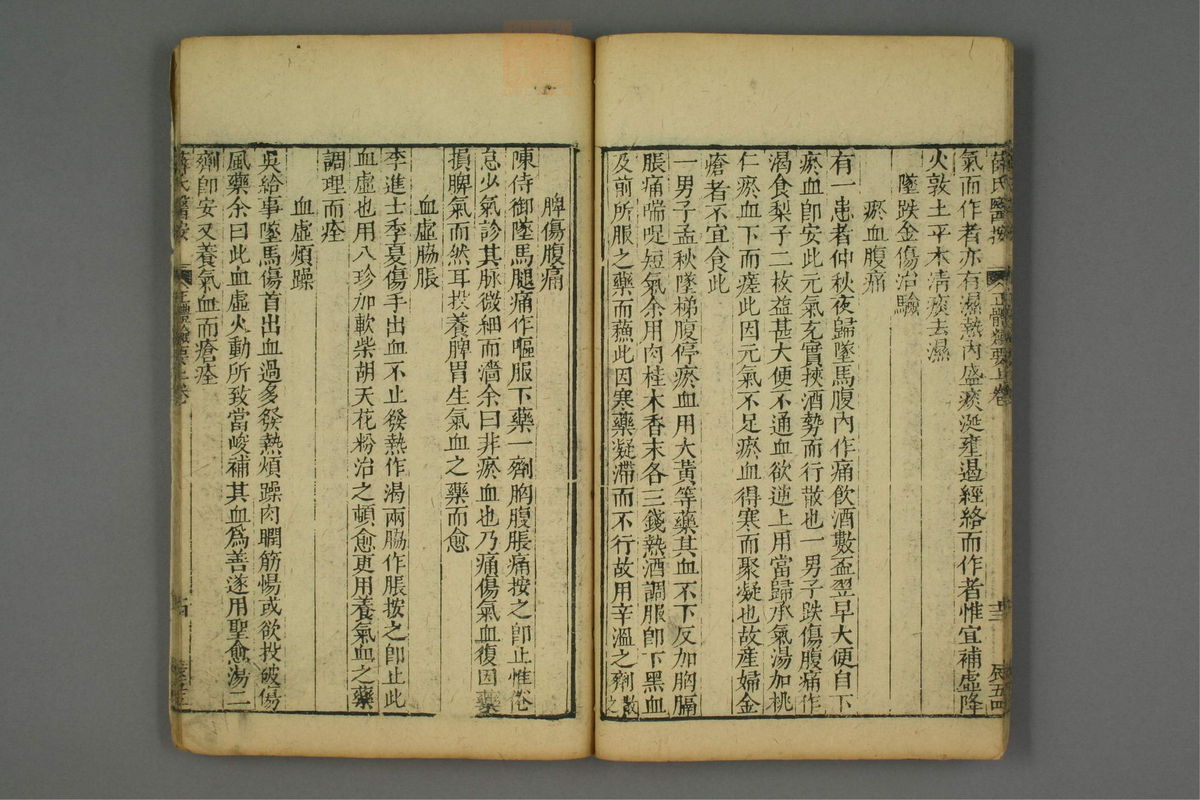 薛氏醫按
正體類要上卷
辰五四
氣而作者亦有濕熱內盛痰涎壅遏經絡而作者惟宜補虛降
火敦土平木清痰去濕
墜跌金傷治驗
瘀血腹痛
有一患者仲秋夜歸墜馬腹內作痛飲酒數盃翌早大便自下
瘀血卽安此元氣充實挾酒勢而行散也一男子跌傷腹痛作
渴食梨子二枚益甚大便不通血欲逆上用當歸承氣湯加桃
仁瘀血下而瘥此因元氣不足瘀血得寒而聚凝也故產婦金
瘡者不宜食此
一男子孟秋墜梯腹停瘀血用大黃等藥其血不下反加胸膈
脹痛喘促短氣余用肉桂木香末各三錢熱酒調服卽下黑血
及前所服之藥而蘓此因寒藥凝滯而不行故用辛溫之劑散之
脾傷腹痛
陳侍御墜馬腿痛作嘔服下藥一劑胸腹脹痛按之卽止惟倦
怠少氣診其脉微細而濇余曰非瘀血也乃痛傷氣血復因藥
損脾氣而然耳投養脾胃生氣血之藥而愈
血虛脇脹
李進士季夏傷手出血不止發熱作渴兩脇作脹按之卽止此
血虛也用八珍加軟柴胡天花粉治之頓愈更用養氣血之藥
調理而痊
血虛煩躁
吳給事墜馬傷首出血過多發熱煩躁肉瞤筋惕或欲投破傷
風藥余曰此血虛火動所致當峻補其血爲善遂用聖愈湯二
劑卽安又養氣血而瘡痊
薛氏醫按
正體類要上卷